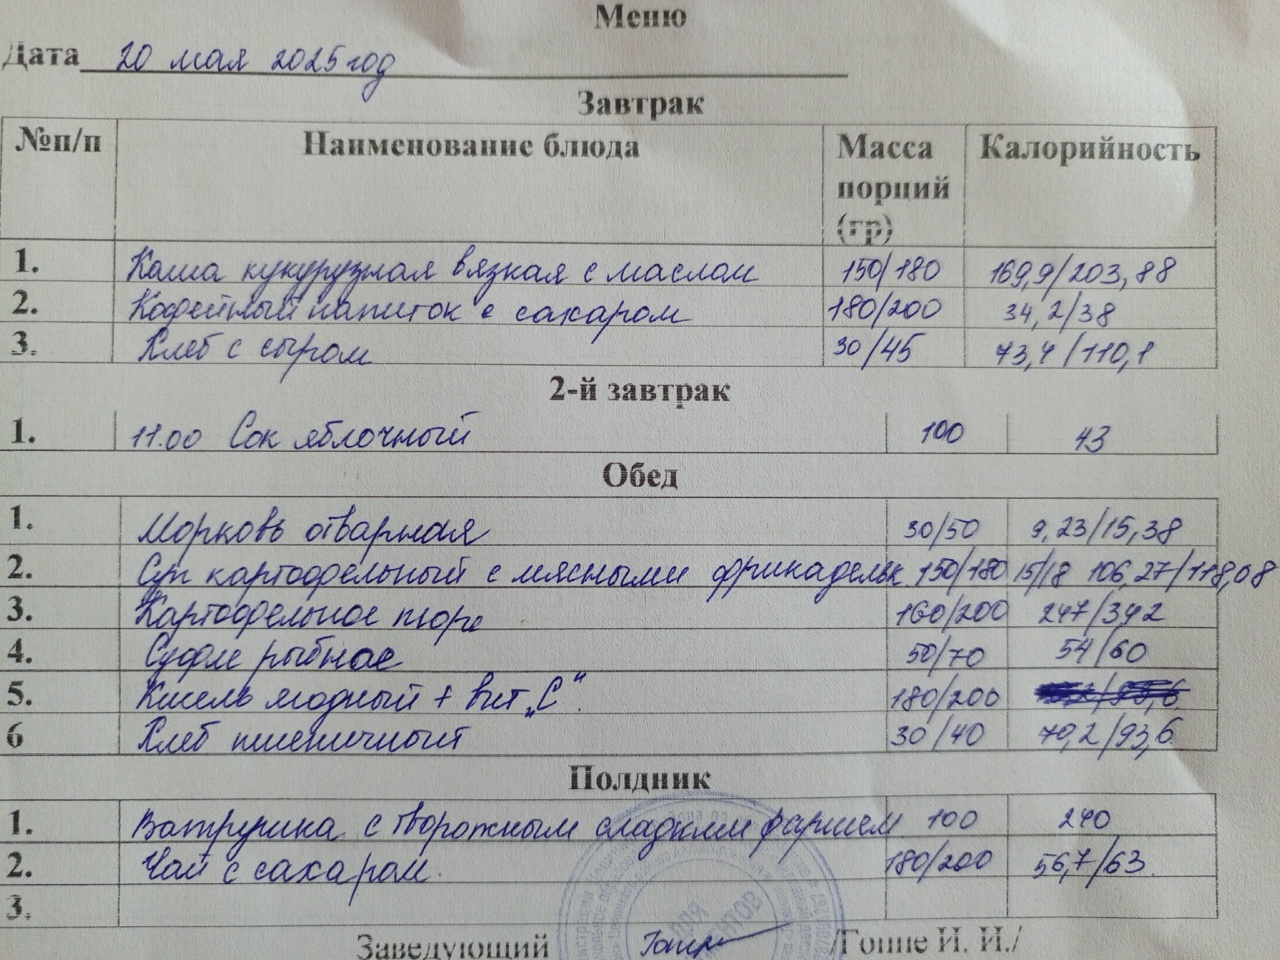 Меню
Дата 20 мая 2025 год
Завтрак
№п/п Наименование блюда Масса порций (гр) Калорийность
1. Каша кукурузная вязкая с маслом 150/180 169,9/203,88
2. Кофейный напиток с сахаром 180/200 34,2/38
3. Хлеб с сыром 30/45 73,4/110,1
2-й завтрак
1. 11.00 Сок яблочный 100 43
Обед
1. Морковь отварная 30/50 9,23/15,38
2. Суп картофельный с мясными фрикадельк 150/180 15/18 106,27/118,08
3. Картофельное пюре 160/200 247/392
4. Суфле рыбное 50/70 54/60
5. Кисель ягодный + вит „С“. 180/200
6 Хлеб пшеничный 30/40 70,2/93,6
Полдник
1. Ватрушка с творожным сладким фаршем 100 240
2. Чай с сахаром. 180/200 56,7/63.
3.
Заведующий /Гоппе И. И./